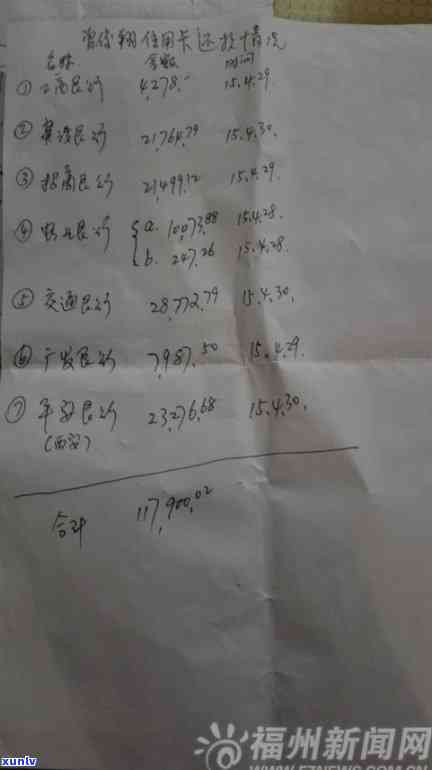 信用卡还款情况
名称 金额 时间
① 工商银行 4,278.- 15.4.29.
② 建设银行 21,764.79 15.4.30.
③ 招商银行 21,499.12 15.4.29.
④ 银行 { a. 10,073.88 15.4.28.
b. 247.26 15.4.28.
⑤ 交通银行 28,772.79 15.4.30.
⑥ 广发银行 7,987.50 15.4.29.
⑦ 平安银行 23,276.68 15.4.30.
(西安)
合计 117,900.02
福州新闻网
WWW.FZNEWS.COM.CN
xuniv